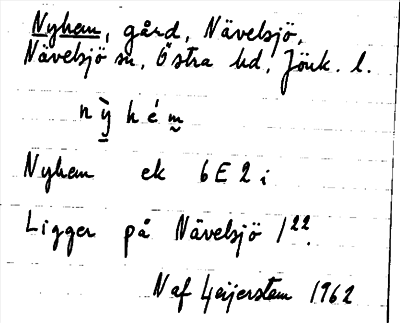 Nyhem, gård, Nävelsjö,
Nävelsjö sn, Östra hd, Jönk. l.
nỳhém
Nyhem ek 6E2i
Ligger på Nävelsjö 1²².
N af Geijerstam 1962